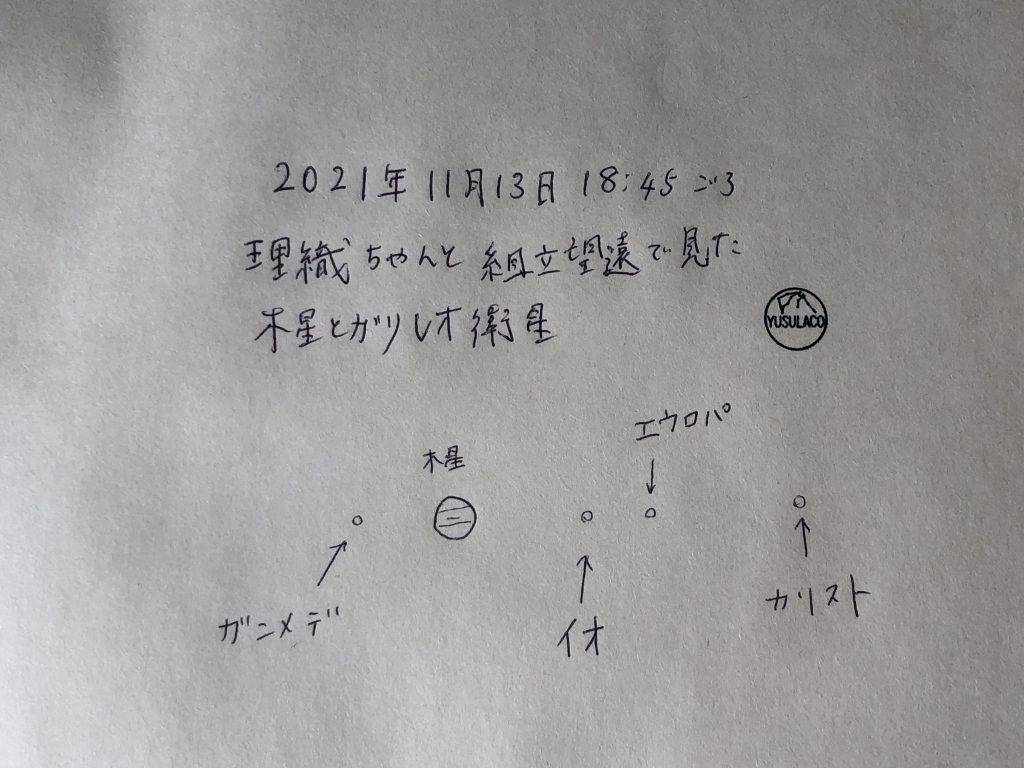 2021年11月13日 18:45ごろ
理織ちゃんと組立望遠で見た
木星とガリレオ衛星
YUSULACO
エウロパ
木星
ガンメデ
イオ
カリスト